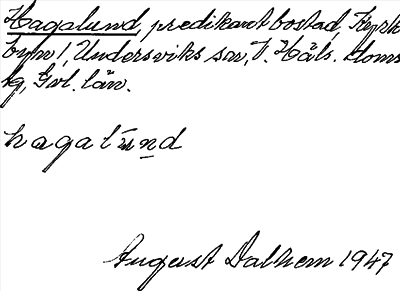 Hagalund, predikantbostad, Kyrk
byn 1, Undersviks sn, V. Häls. doms
ag, Gvl. län.
hagalund
August Dalhem 1947